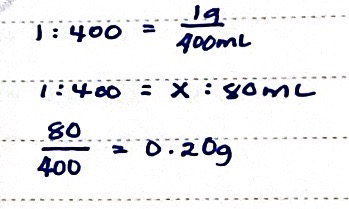 1 : 400 = 1g / 400mL
1 : 400 = X : 80mL
80 / 400 = 0.20g